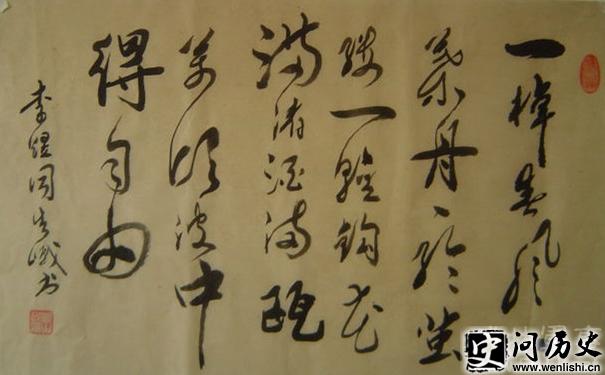 一棹春风
葉舟一纶茧
缕一轻钩花
满渚酒满瓯
萬顷波中
得自由
李煜词
书
问历史
www.wenlishi.cn